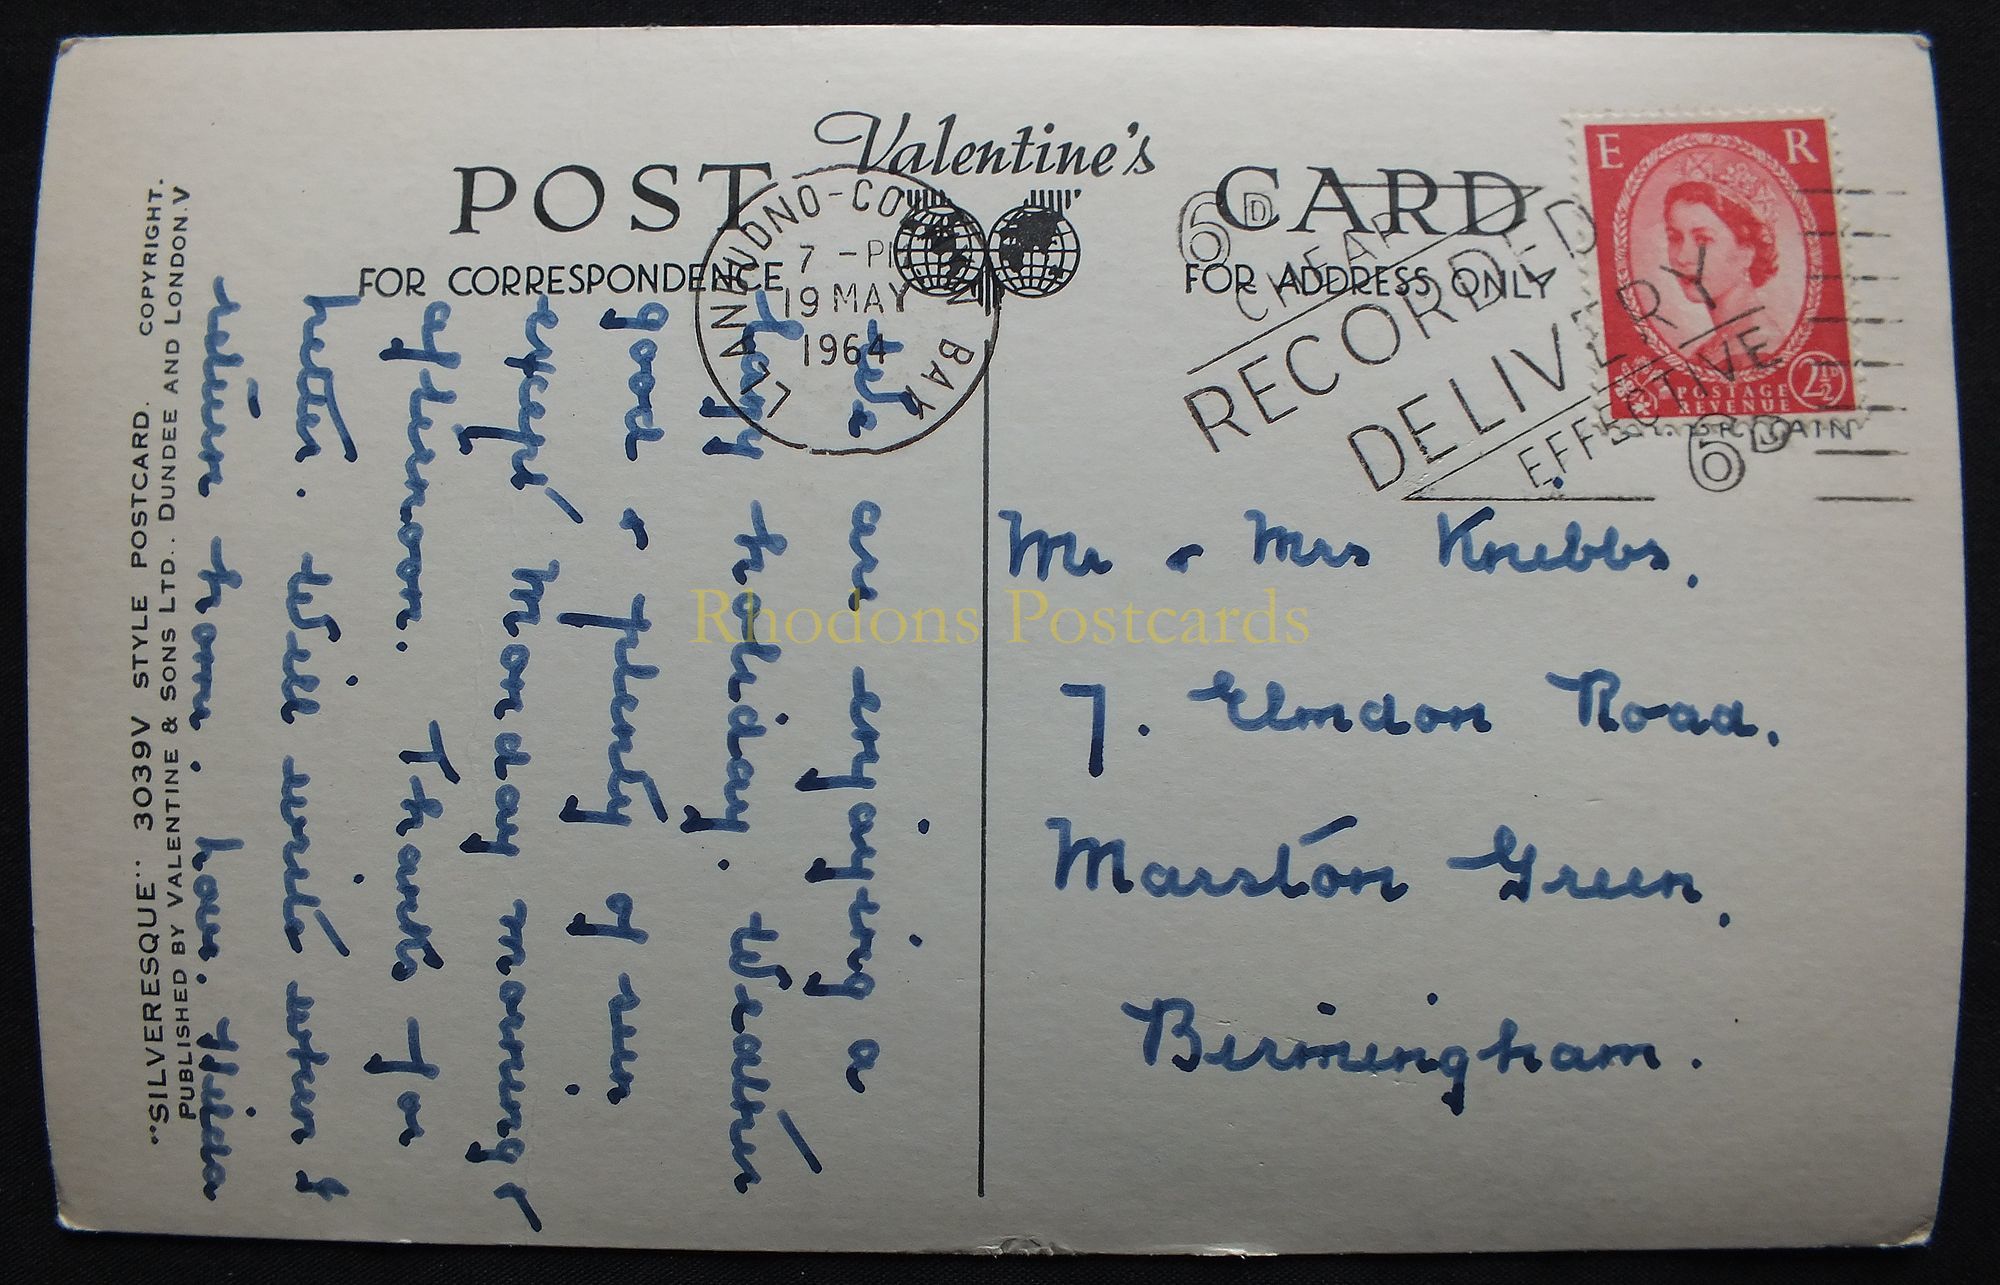 Valentine's
POST CARD
FOR CORRESPONDENCE
FOR ADDRESS ONLY
LLANDUDNO-COLWYN BAY
7 - PM
19 MAY
1964
6D
CHEAP
RECORDED
DELIVERY
EFFECTIVE
6D
E R
POSTAGE
REVENUE
2½D
BRITAIN
We are enjoying a
happy holiday. Weather
good & plenty of sun
except Monday morning &
afternoon. Thanks for
letter. Will write when I
return home. love. Hilda
Mr & Mrs Knebbs,
7. Elmdon Road,
Marston Green,
Birmingham.
"SILVERESQUE" 3039V STYLE POSTCARD. COPYRIGHT.
PUBLISHED BY VALENTINE & SONS LTD., DUNDEE AND LONDON.V
Rhodons Postcards